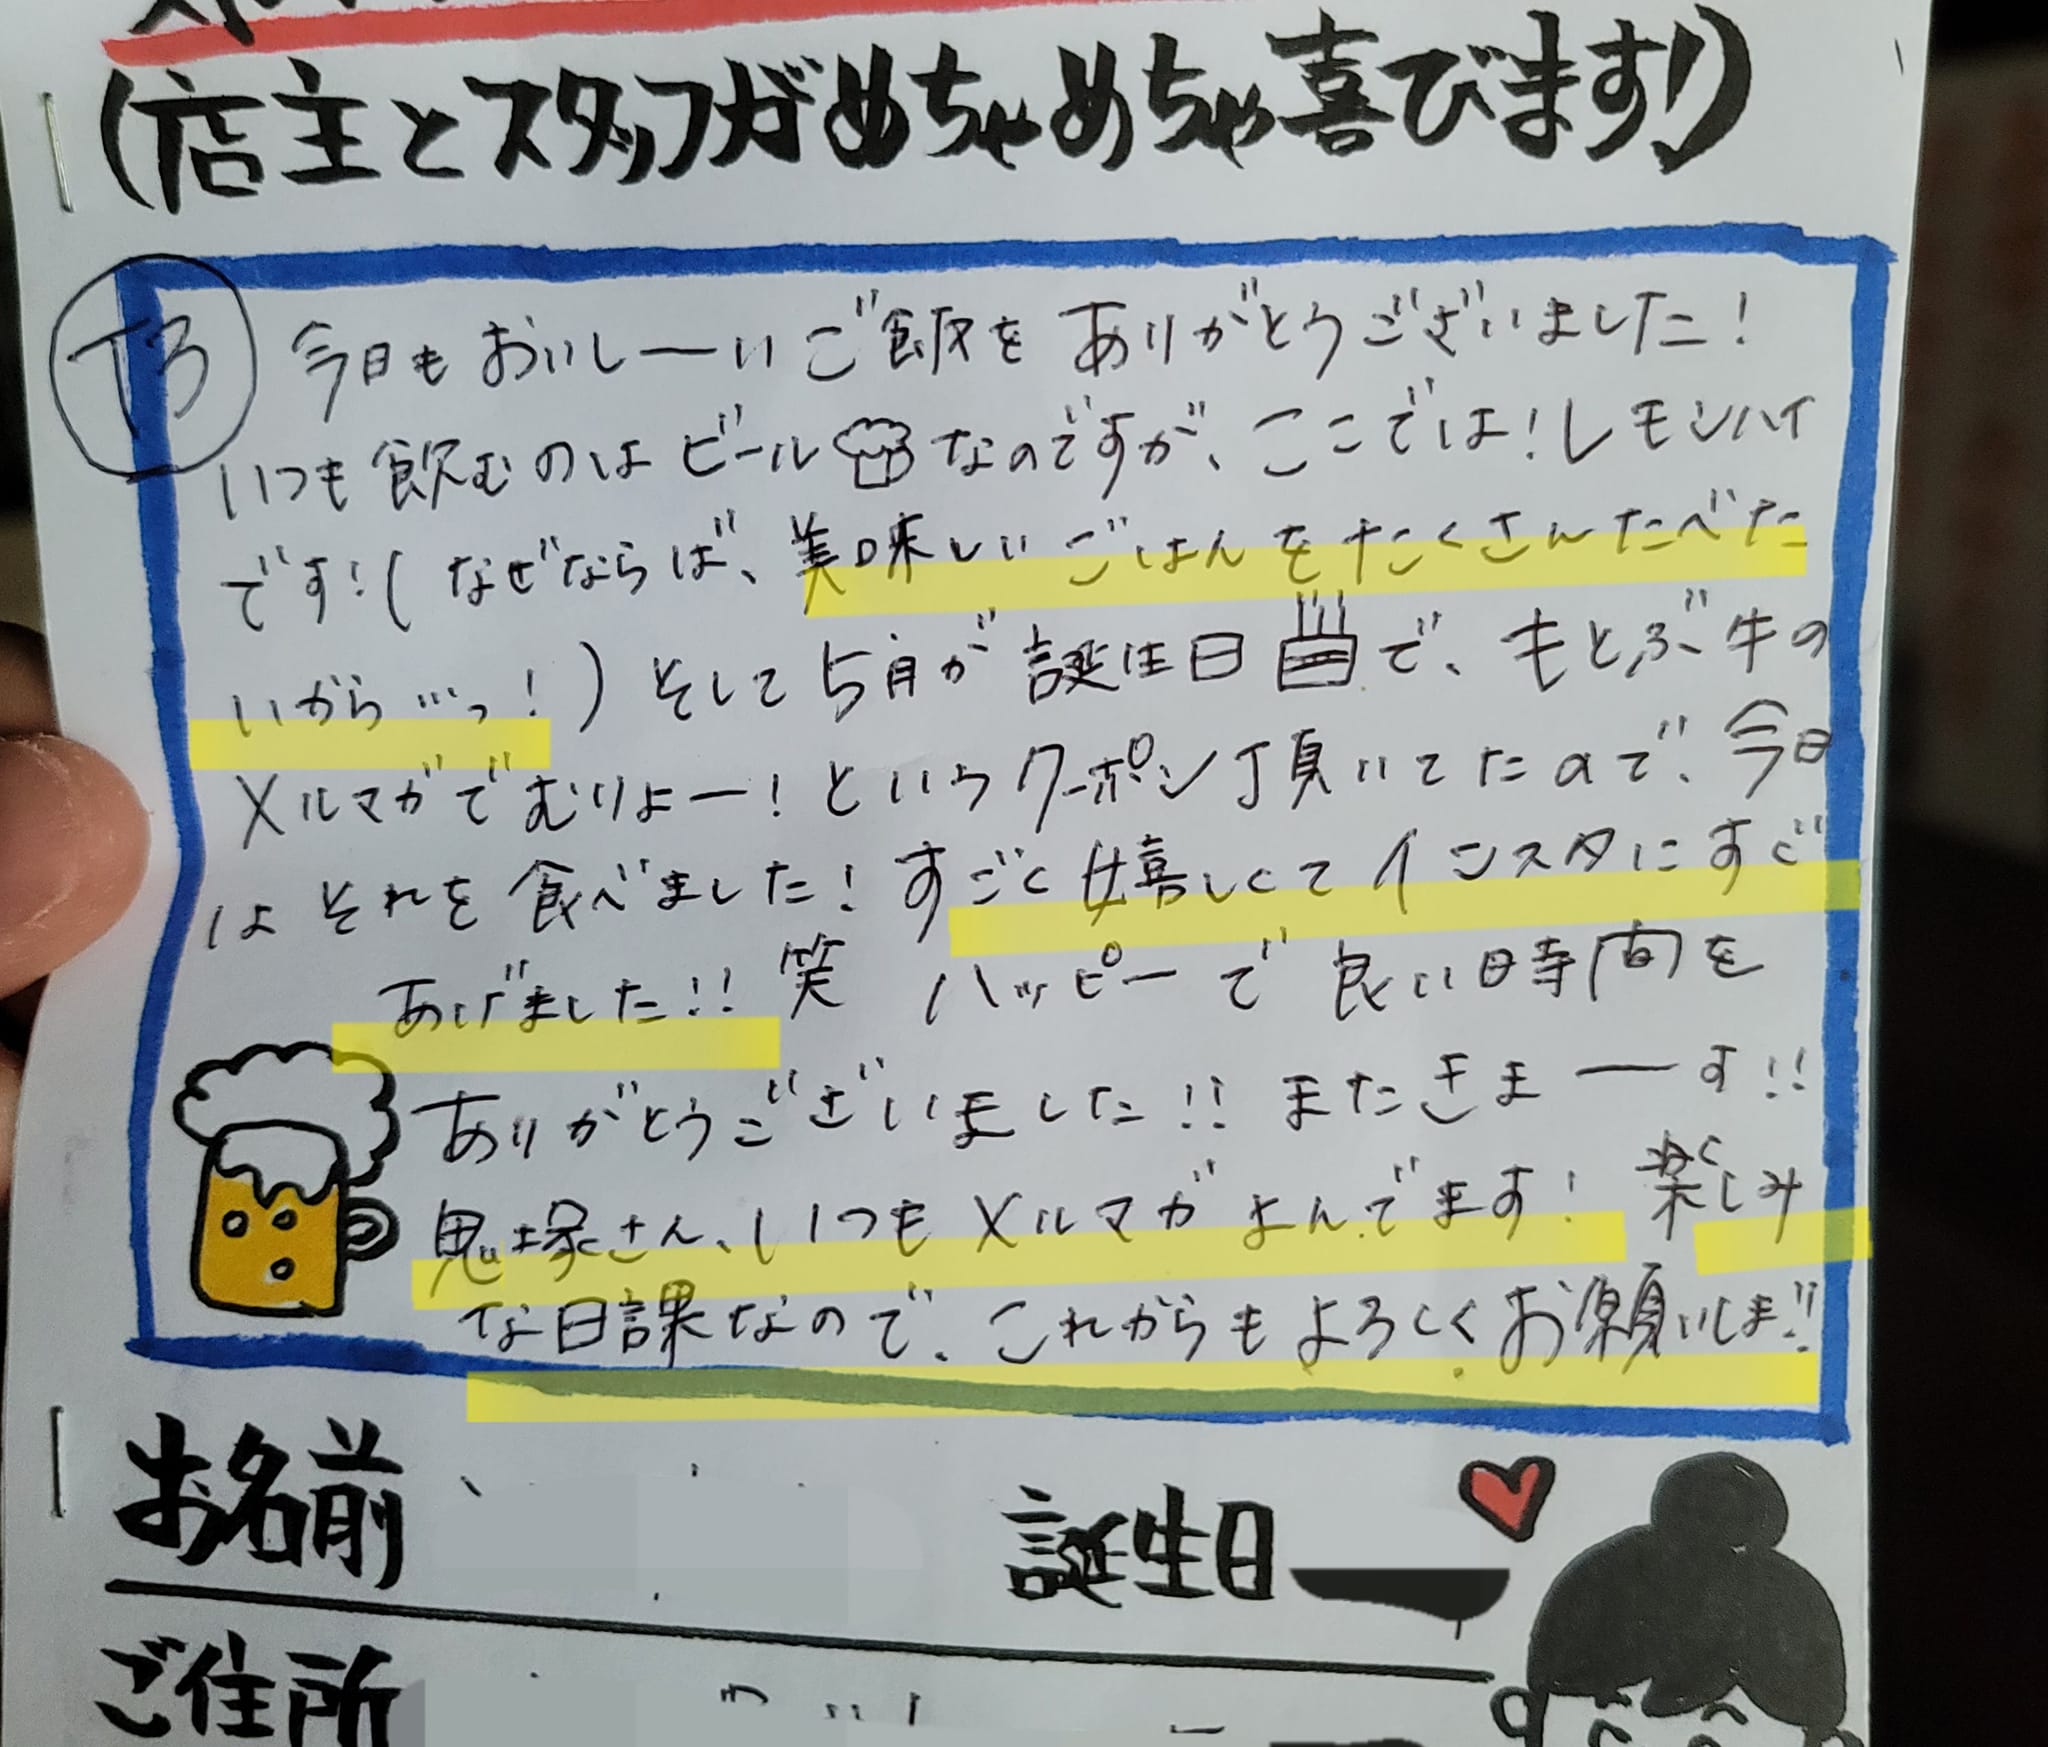 (店主とスタッフがめちゃめちゃ喜びます!)
T3
今日もおいしーいご飯をありがとうございました!
いつも飲むのはビールなのですが、ここでは!レモンハイ
です!(なぜならば、美味しいごはんをたくさんたべた
いから…っ!)そして5月が誕生日で、もとぶ牛の
メルマガでむりょー!というクーポン頂いてたので、今日
はそれを食べました!すごく嬉しくてインスタにすぐ
あげました!!笑 ハッピーで良い時間を
ありがとうございました!!またきまーす!!
鬼塚さん、いつもメルマガよんでます!楽しみ
な日課なので、これからもよろしくお願いしま!!
お名前 誕生日
ご住所